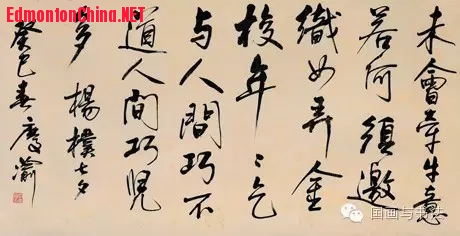 EdmontonChina.NET
未會牽牛意
若何須邀
織女弄金
梭年〻乞
与人間巧不
道人間巧児
多 楊樸七夕
癸巳春
国画与书法